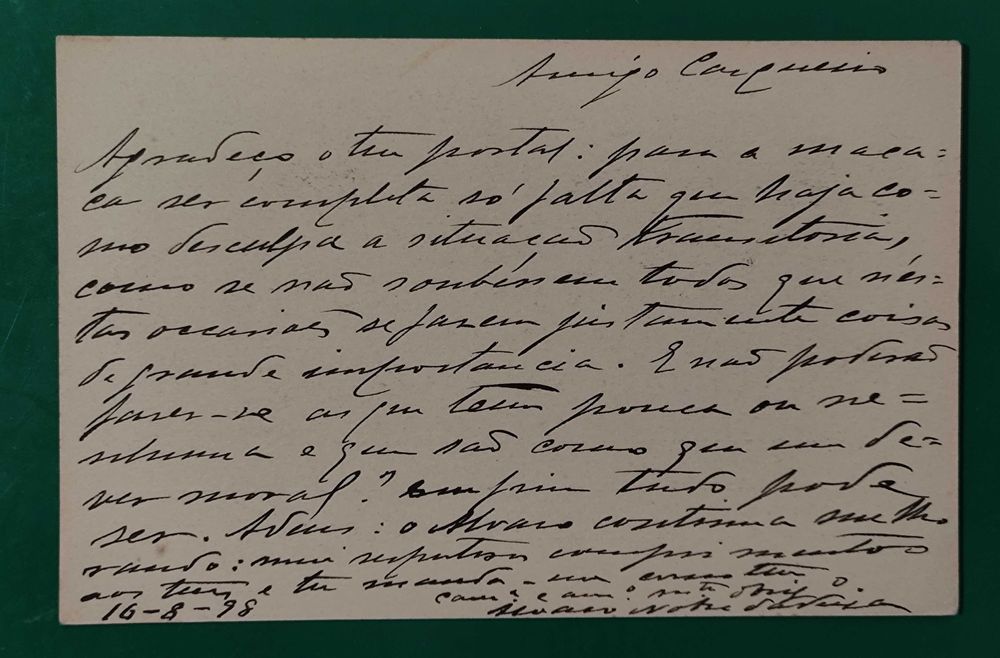 Amigo Cerqueira
Agradeço o teu postal: para a maça=
ca ser completa só falta que haja co=
mo desculpa a situação transitoria,
como se não soubéssem todos que nés=
tas occasiões se fazem justamente coisas
de grande importancia. E não poderão
fazer-se as que tem pouca ou ne=
nhuma e que são como que um de=
ver moral? emfim tudo pode
ser. Adeus: o Alvaro continua melho
rando: mui respeitosos comprimentos
aos teus e tu manda
16-8-98